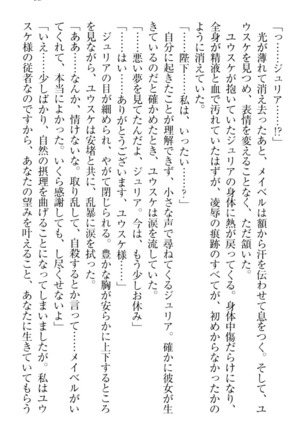 「っ……ジュリア……!?」
光が薄れて消え去ったあと、メイベルは額から汗を伝わせて息をつく。そして、ユ
ウスケを見つめ、表情を変えることなく、ただ頷いた。
ユウスケが抱いていたジュリアの身体に熱が戻ってくる。身体中傷だらけになり、
全身が精液と血で汚れていたはずが、凌辱の痕跡のすべてが、初めからなかったかの
ように消えていた。
「……陛下……私は、いったい……」
自分に起きたことが理解できず、小さな声で尋ねてくるジュリア。確かに彼女が生
きていると確かめたとき、ユウスケは涙を流していた。
「……悪い夢を見てたんだよ、ジュリア。今は、もう少しお休み」
「はい……ありがとうございます、ユウスケ様……」
ジュリアの目が細められ、やがて閉じられる。豊かな胸が安らかに上下するところ
を見ながら、ユウスケは安堵と共に、乱暴に涙を拭った。
「ああ……なんか、情けないな。取り乱して、自殺するとか言って……メイベルがい
てくれて、本当によかった。いくら感謝しても、し尽くせないよ」
「いえ……少しばかり、自然の摂理を曲げることになってしまいましたが。私はユウ
スケ様の従者なのですから、あなたの望みを叶えること、あなたに生きていてもらう